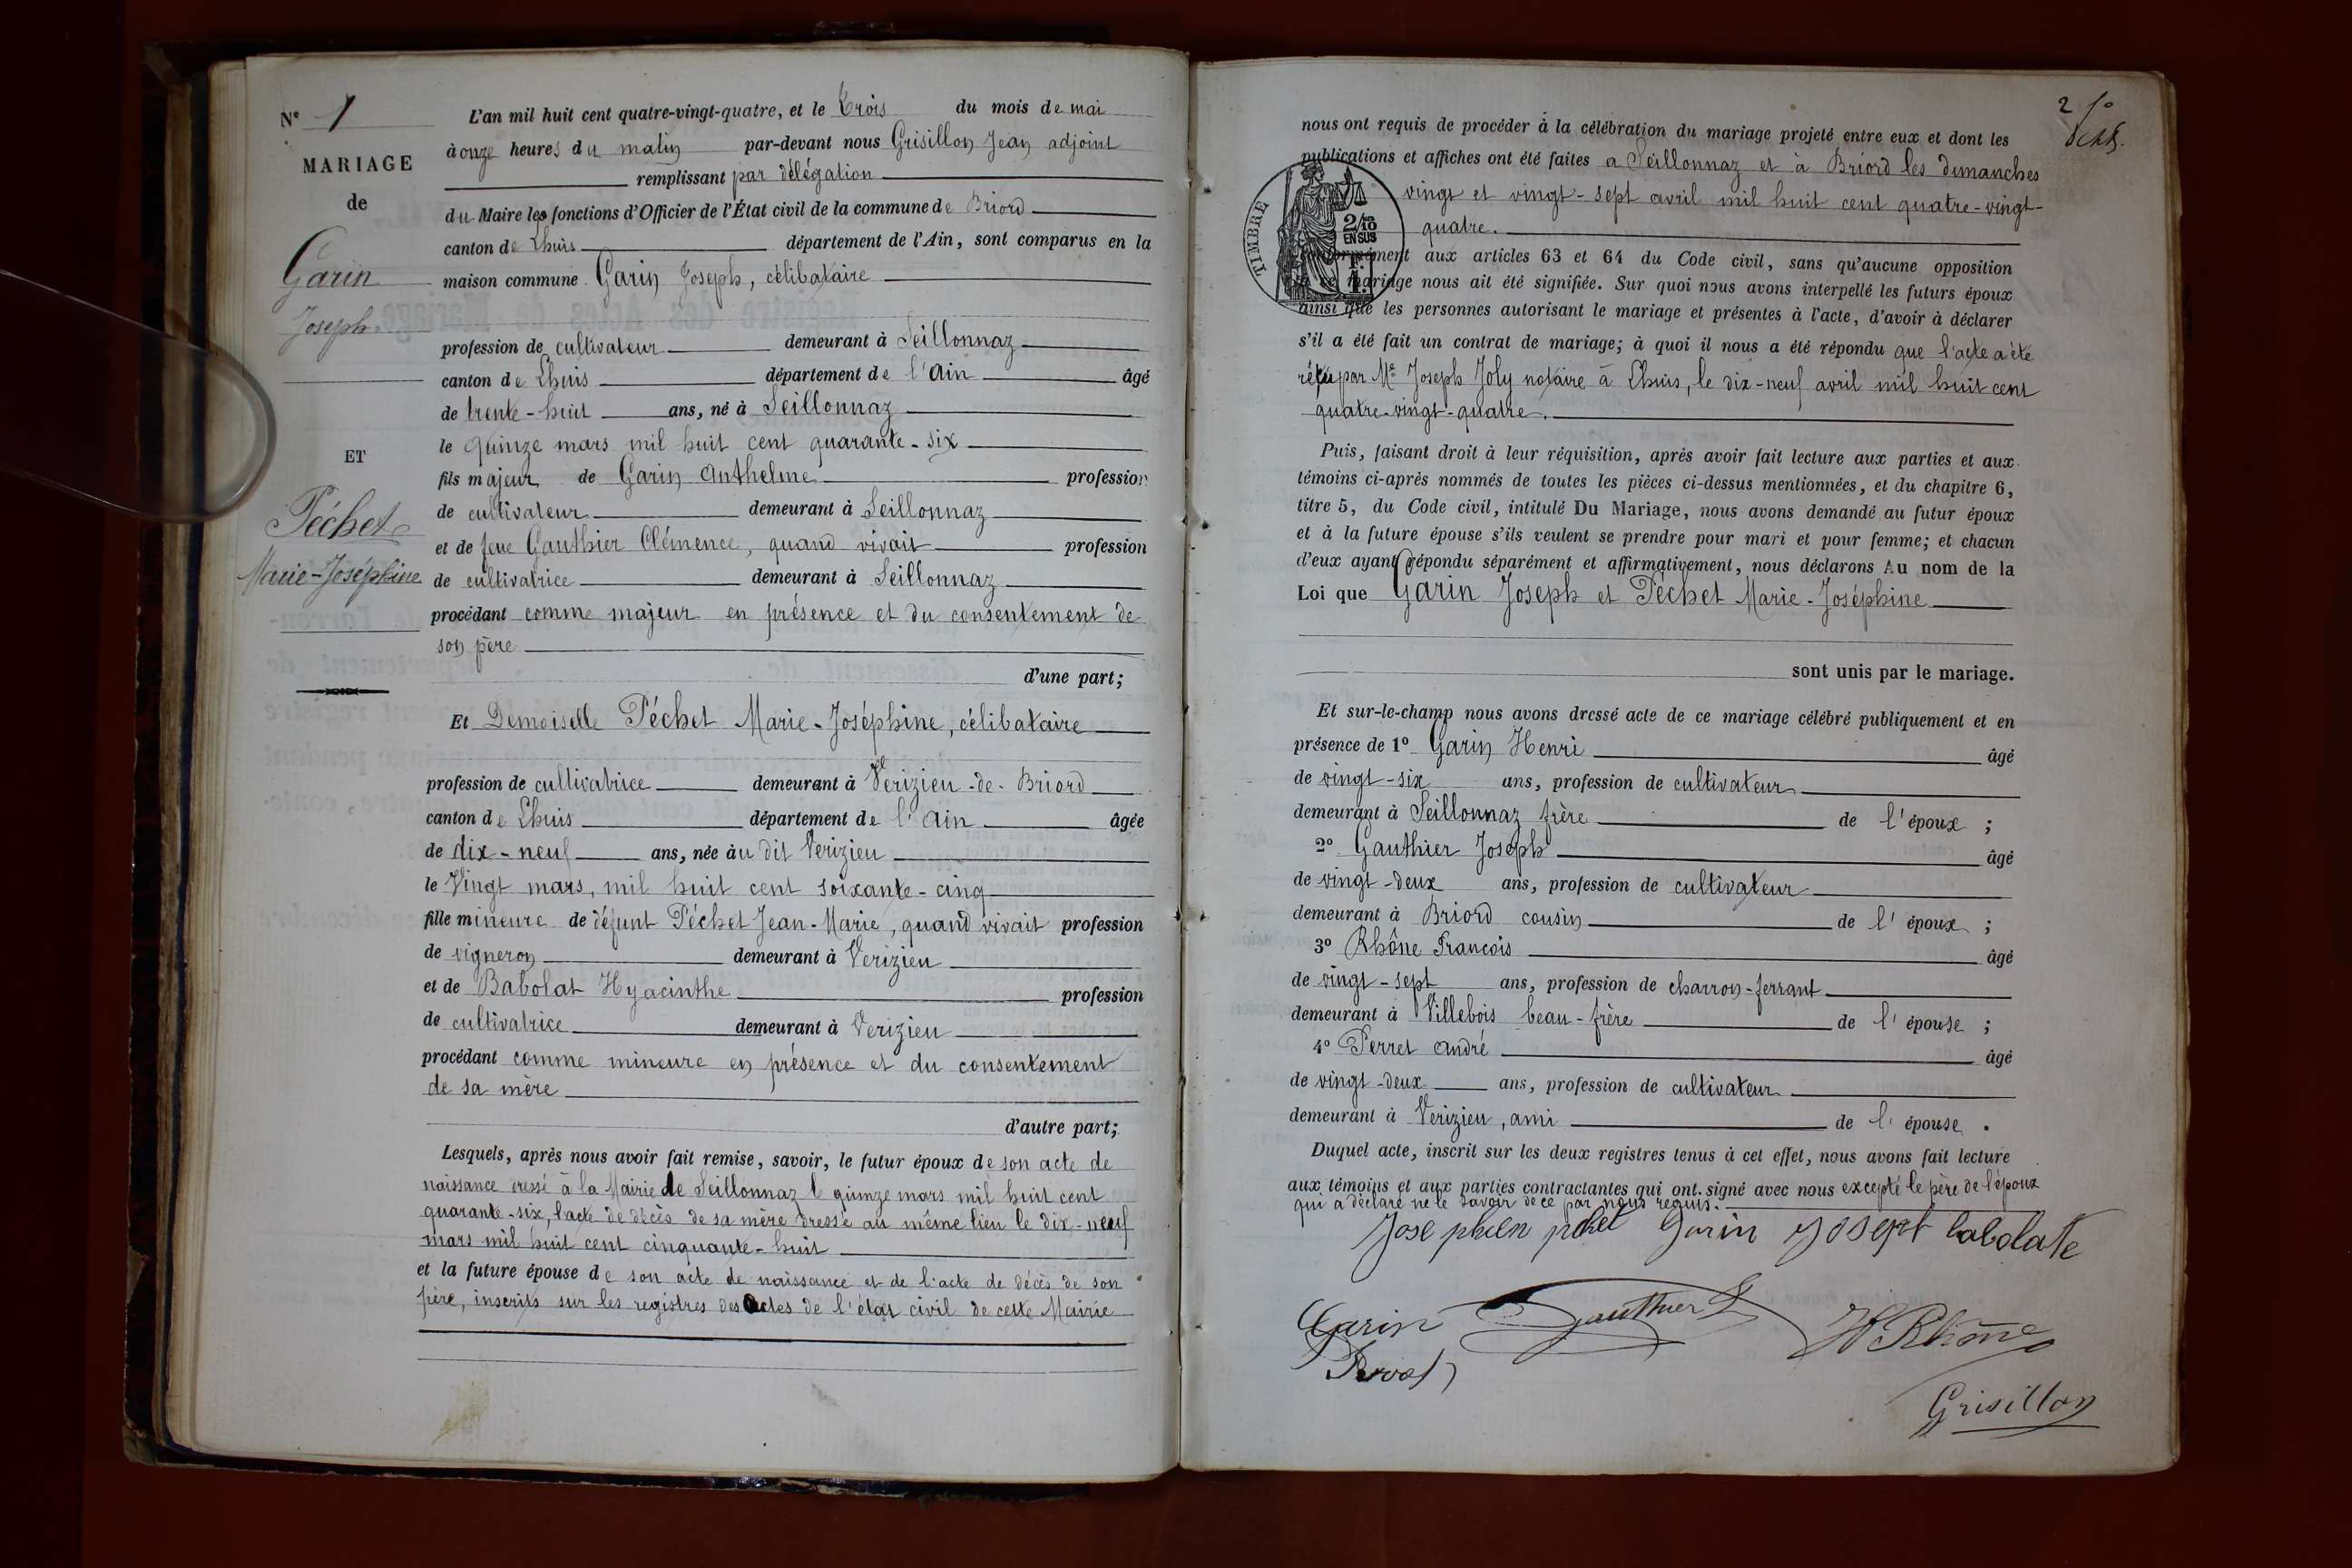 N° 1
MARIAGE
de
Garin
Joseph
ET
Péchet
Marie-Joséphine
L'an mil huit cent quatre-vingt-quatre, et le trois du mois de mai
à onze heures du matin par-devant nous Grisillon Jean adjoint
remplissant par délégation
du Maire les fonctions d'Officier de l'État civil de la commune de Briord
canton de Lhuis département de l'Ain, sont comparus en la
maison commune Garin Joseph, célibataire
profession de cultivateur demeurant à Seillonnaz
canton de Lhuis département de l'Ain âgé
de trente-huit ans, né à Seillonnaz
le quinze mars mil huit cent quarante-six
fils majeur de Garin Anthelme profession
de cultivateur demeurant à Seillonnaz
et de feue Gauthier Clémence, quand vivait profession
de cultivatrice demeurant à Seillonnaz
procédant comme majeur en présence et du consentement de
son père
d'une part;
Et Demoiselle Péchet Marie-Joséphine, célibataire
profession de cultivatrice demeurant à Verizieu-de-Briord
canton de Lhuis département de l'Ain âgée
de dix-neuf ans, née au dit Verizieu
le Vingt mars, mil huit cent soixante-cinq
fille mineure de défunt Péchet Jean-Marie, quand vivait profession
de vigneron demeurant à Verizieu
et de Babolat Hyacinthe profession
de cultivatrice demeurant à Verizieu
procédant comme mineure en présence et du consentement
de sa mère
d'autre part;
Lesquels, après nous avoir fait remise, savoir, le futur époux de son acte de
naissance dressé à la Mairie de Seillonnaz le quinze mars mil huit cent
quarante-six, l'acte de décès de sa mère dressé au même lieu le dix-neuf
mars mil huit cent cinquante-huit
et la future épouse de son acte de naissance et de l'acte de décès de son
père, inscrits sur les registres des Actes de l'état civil de cette Mairie
2
nous ont requis de procéder à la célébration du mariage projeté entre eux et dont les
publications et affiches ont été faites a Seillonnaz et à Briord les dimanches
vingt et vingt-sept avril mil huit cent quatre-vingt-
quatre.
TIMBRE
2/10
EN SUS
F.
1.
conformément aux articles 63 et 64 du Code civil, sans qu'aucune opposition
à ce mariage nous ait été signifiée. Sur quoi nous avons interpellé les futurs époux
ainsi que les personnes autorisant le mariage et présentes à l'acte, d'avoir à déclarer
s'il a été fait un contrat de mariage; à quoi il nous a été répondu que l'acte a été
réçu par Me Joseph Joly notaire à Lhuis, le dix-neuf avril mil huit cent
quatre-vingt-quatre.
Puis, faisant droit à leur réquisition, après avoir fait lecture aux parties et aux
témoins ci-après nommés de toutes les pièces ci-dessus mentionnées, et du chapitre 6,
titre 5, du Code civil, intitulé Du Mariage, nous avons demandé au futur époux
et à la future épouse s'ils veulent se prendre pour mari et pour femme; et chacun
d'eux ayant répondu séparément et affirmativement, nous déclarons Au nom de la
Loi que Garin Joseph et Péchet Marie-Joséphine
sont unis par le mariage.
Et sur-le-champ nous avons dressé acte de ce mariage célébré publiquement et en
présence de 1° Garin Henri âgé
de vingt-six ans, profession de cultivateur
demeurant à Seillonnaz frère de l'époux ;
2° Gauthier Joseph âgé
de vingt-deux ans, profession de cultivateur
demeurant à Briord cousin de l'époux ;
3° Rhône Francois âgé
de vingt-sept ans, profession de charron-ferrant
demeurant à Villebois beau-frère de l'épouse ;
4° Perret André âgé
de vingt-deux ans, profession de cultivateur
demeurant à Verizieu, ami de l'épouse.
Duquel acte, inscrit sur les deux registres tenus à cet effet, nous avons fait lecture
aux témoins et aux parties contractantes qui ont signé avec nous excepté le père de l'époux
qui a déclaré ne le savoir de ce par nous requis.
Garin Joseph babolate
Garin Gauthier J Rhône
Grisillon